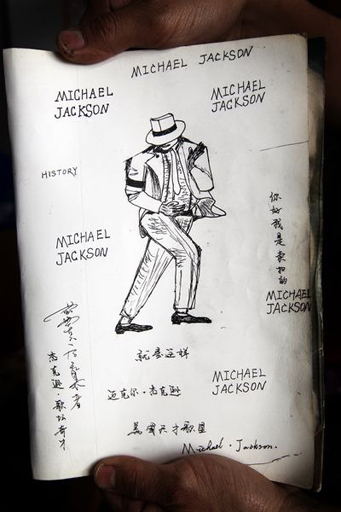 MICHAEL JACKSON
MICHAEL
JACKSON
MICHAEL
JACKSON
HISTORY
MICHAEL
JACKSON
你好我是
MICHAEL
JACKSON
就要这样
MICHAEL
JACKSON
迈克尔·杰克逊
杰克逊·歌坛奇才
美国天才歌星
Michael. Jackson.